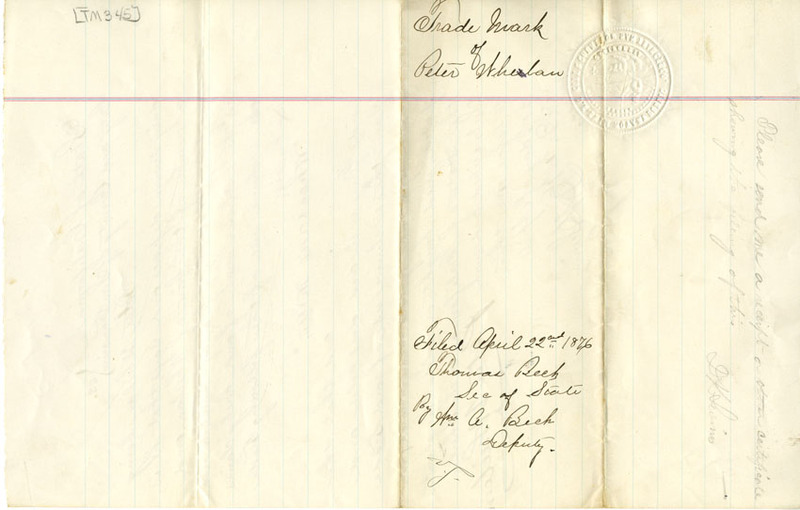 [TM345]
Trade Mark
of
Peter Whelan
Filed April 22nd 1876
Thomas Beck
Sec of State
By Wm A. Beck
Deputy.
Please send me a certificate
showing the filing of this